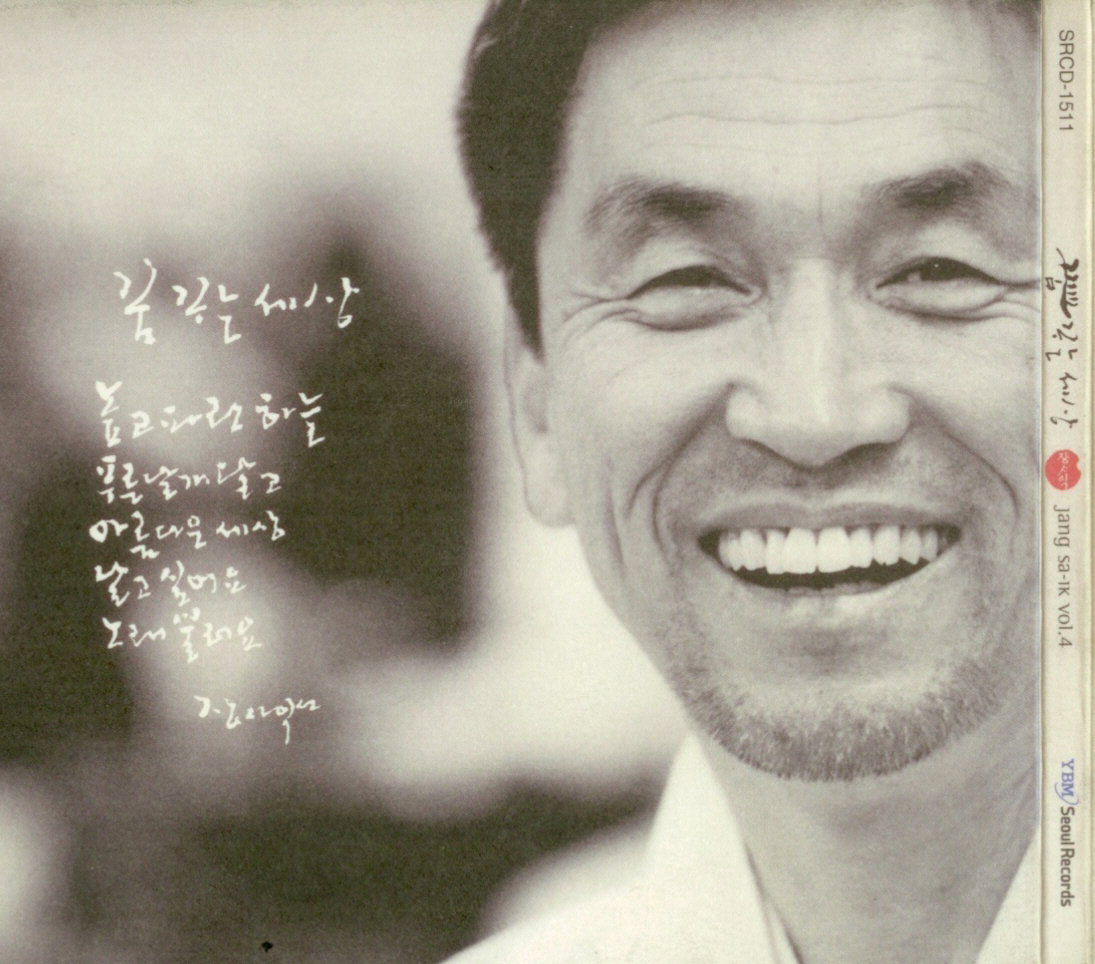 꿈 같은 세상
높고 파란 하늘
푸른 날개 달고
아름다운 세상
날고 싶어요
노래 불러요
SRCD-1511
꿈 같은 세상
장사익
jang sa-ik vol.4
YBM Seoul Records